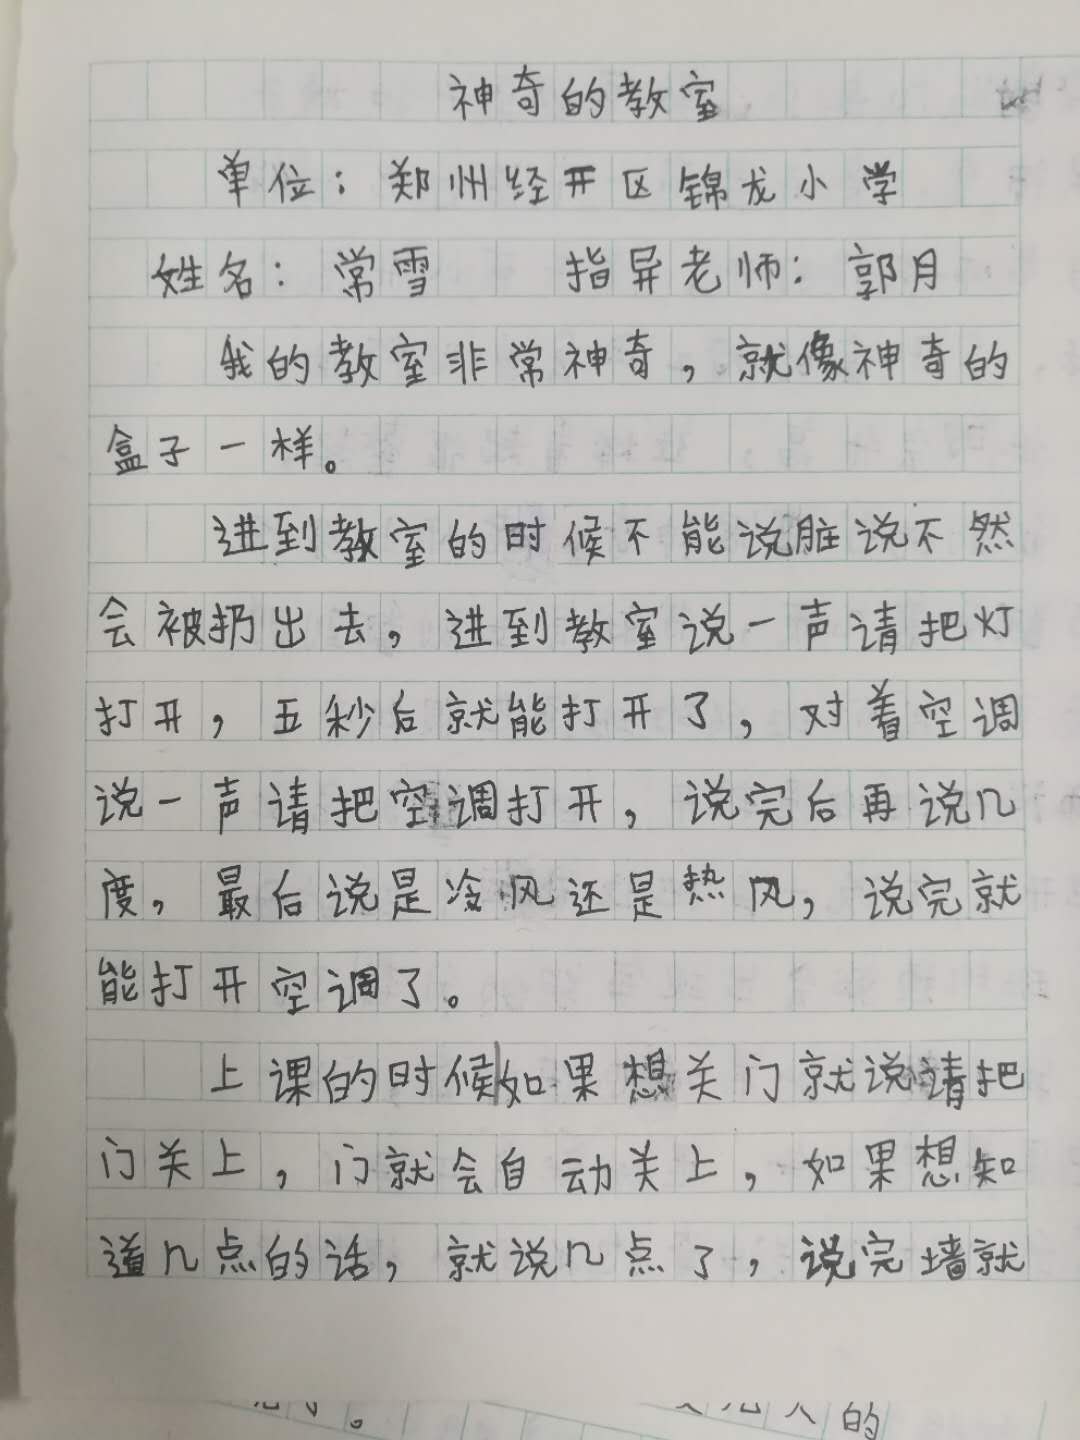 神奇的教室
单位：郑州经开区锦龙小学
姓名：常雪 指异老师：郭月
我的教室非常神奇，就像神奇的
盒子一样。
进到教室的时候不能说脏说不然
会被扔出去，进到教室说一声请把灯
打开，五秒后就能打开了，对着空调
说一声请把空调打开，说完后再说几
度，最后说是冷风还是热风，说完就
能打开空调了。
上课的时候如果想关门就说请把
门关上，门就会自动关上，如果想知
道几点的话，就说几点了，说完墙就
的